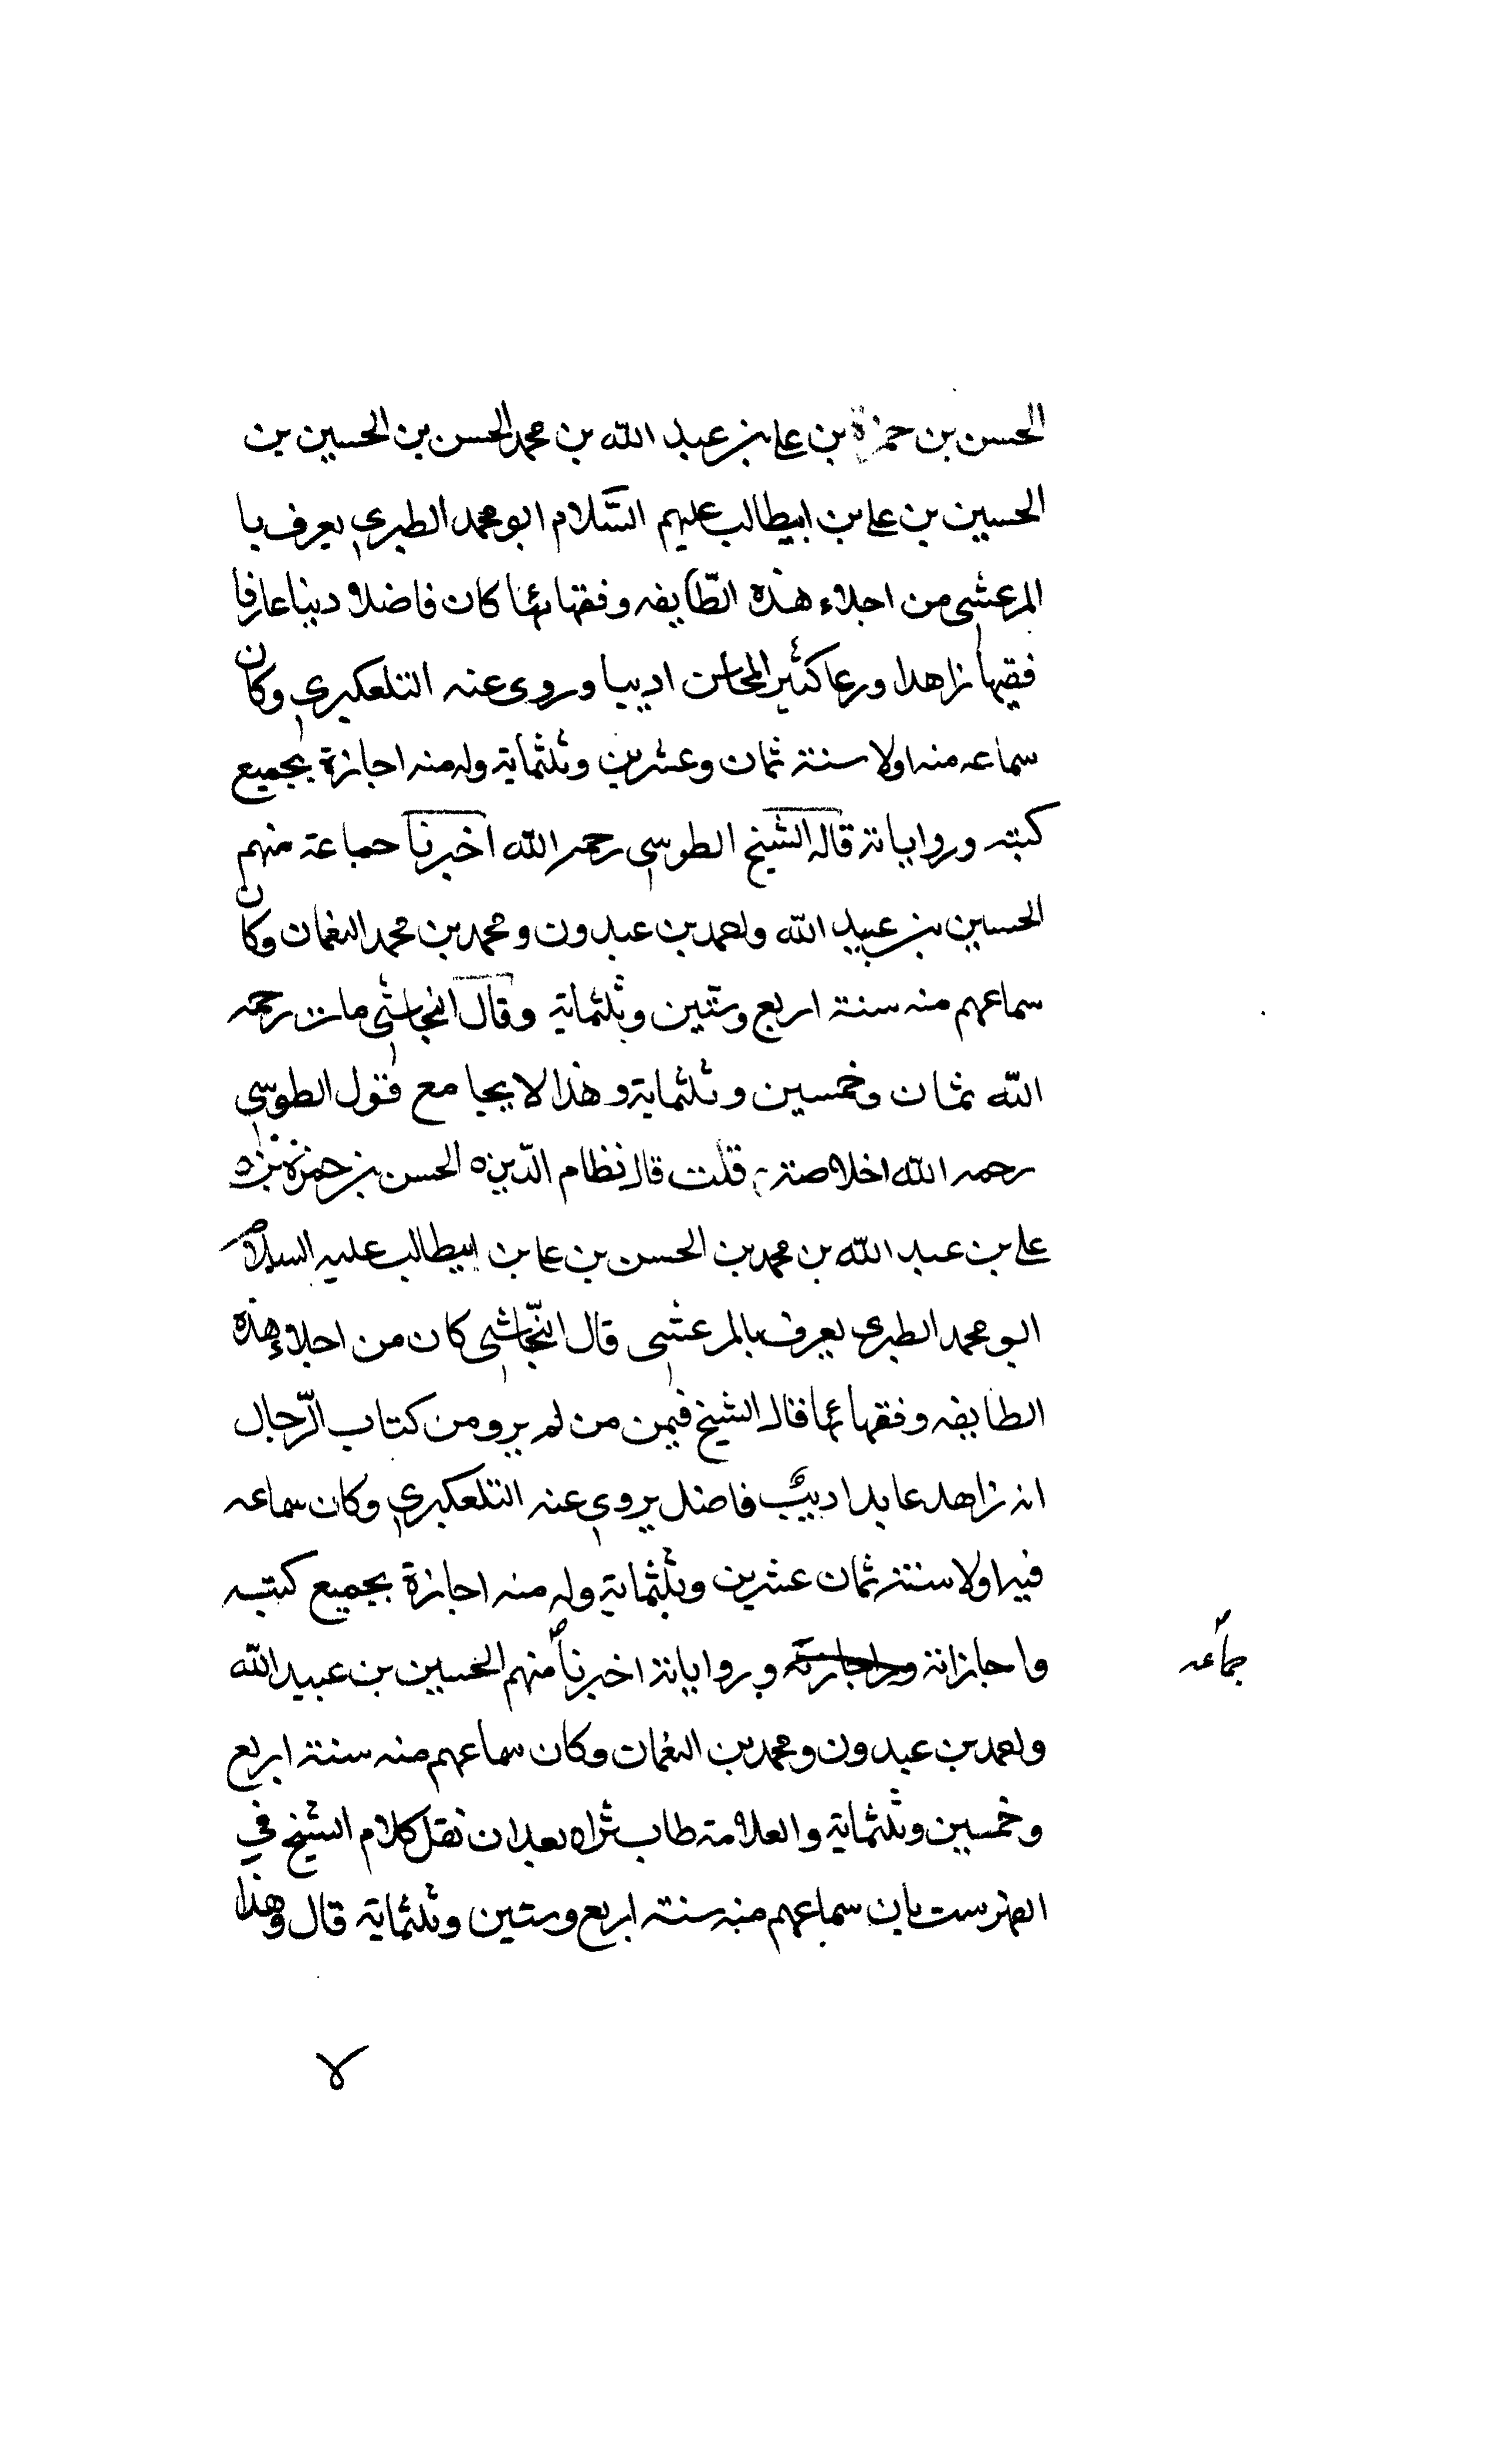 الحسن بن حمزة بن على بن عبد الله بن محمد الحسن بن الحسين بن
الحسين بن على بن ابيطالب عليهم السّلام ابو محمد الطبرى يعرف با
المرعشى من اجلاء هذه الطّايفه وفقهائها كان فاضلا دينا عارفا
فقيها زاهدا ورعا كثير المحاسن اديبا وروى عنه التلعكبرى وكان
سماعه منه اولا سنة ثمان وعشرين وثلثماية وله منه اجازة بجميع
كتبه ورواياته قاله الشيخ الطوسى رحمه الله اخبرنا جماعة منهم
الحسين بن عبيد الله واحمد بن عبدون ومحمد بن محمد النعمان وكان
سماعهم منه سنة اربع وستين وثلثماية وقال النجاشى مات رحمه
الله ثمان وخمسين وثلثماية وهذا لا يجامع قول الطوسى
رحمه الله اخلاصة قلت قال نظام الدّين الحسن بن حمزة بن
على بن عبد الله بن محمد بن الحسن بن على بن ابيطالب عليه السلام
ابو محمد الطبرى يعرف بالمرعشى قال النّجاشى كان من اجلاء هذه
الطايفه وفقهائها قال الشيخ فيمن من لم يرو من كتاب الرّجال
انه زاهد عابد اديبٌ فاضل يروى عنه التلعكبرى وكان سماعه
فيه اولا سنة ثمان عشرين وثلثماية وله منه اجازة بجميع كتبه
واجازاته واجازته ورواياته اخبرنا منهم الحسين بن عبيد الله
جماعه
واحمد بن عبدون ومحمد بن النعمان وكان سماعهم منه سنة اربع
وخمسين وثلثماية والعلامة طاب ثراه بعد ان نقل كلام الشيخ في
الفهرست بان سماعهم منه سنة اربع وستين وثلثماية قال وهذا
لا